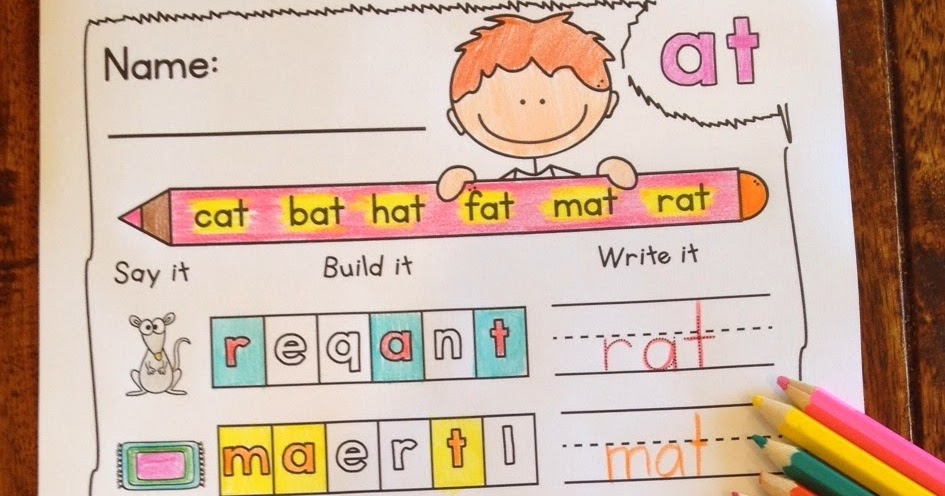 at
Name:
cat bat hat fat mat rat
Say it Build it Write it
r e q a n t rat
m a e r t l mat